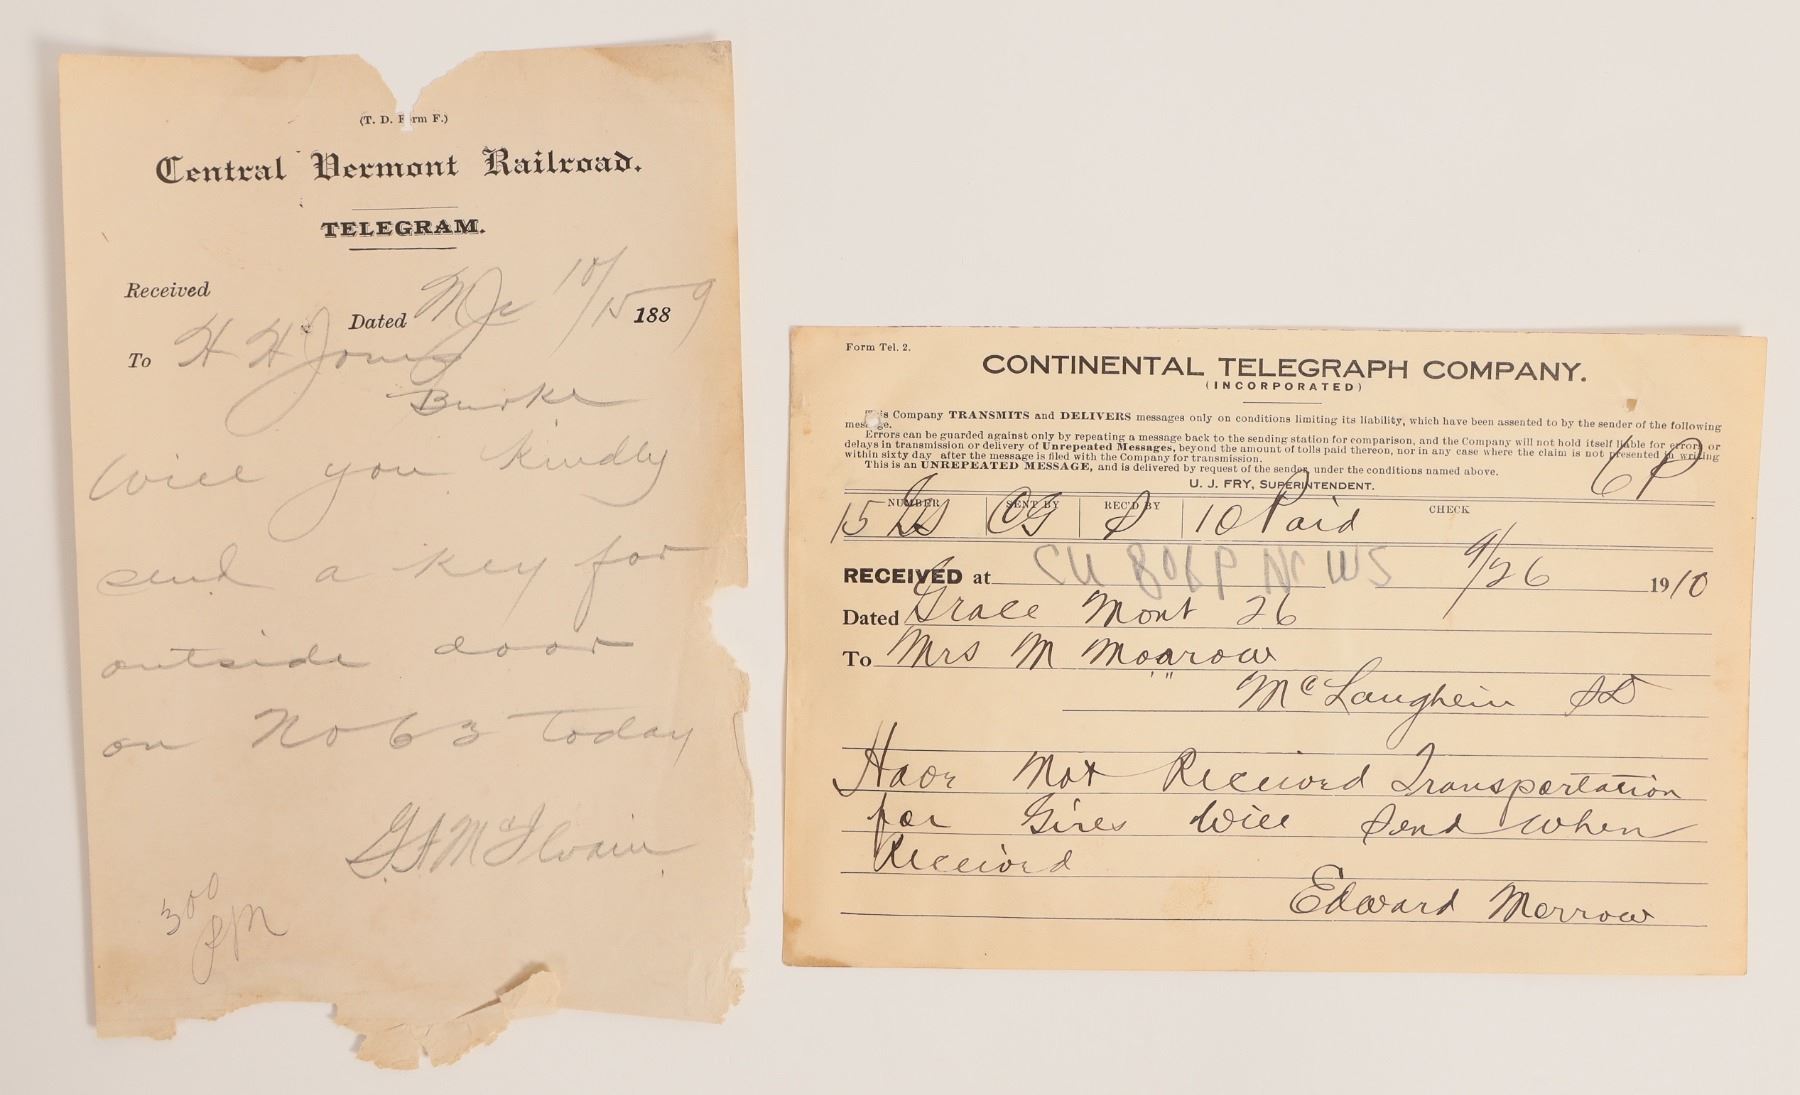 (T. D. Form F.)
Central Vermont Railroad.
TELEGRAM.
Received
Dated 10/15 1889
To H H Jones
Burke
Will you kindly
send a key for
outside door
on No 63 today
G F McIlvain
3 00
PM
Form Tel. 2.
CONTINENTAL TELEGRAPH COMPANY.
(INCORPORATED)
This Company TRANSMITS and DELIVERS messages only on conditions limiting its liability, which have been assented to by the sender of the following
message.
Errors can be guarded against only by repeating a message back to the sending station for comparison, and the Company will not hold itself liable for errors or
delays in transmission or delivery of Unrepeated Messages, beyond the amount of tolls paid thereon, nor in any case where the claim is not presented in writing
within sixty day after the message is filed with the Company for transmission.
This is an UNREPEATED MESSAGE, and is delivered by request of the sender under the conditions named above.
U. J. FRY, SUPERINTENDENT.
6P
NUMBER SENT BY REC'D BY CHECK
15 CG S 10 Paid
RECEIVED at CU 806P NC WS 9/26 1910
Dated Grace Mont 26
To Mrs M Moarow
McLaughein SD
Have Not Received Transportation
for Gires Will Send When
Received
Edward Merrow